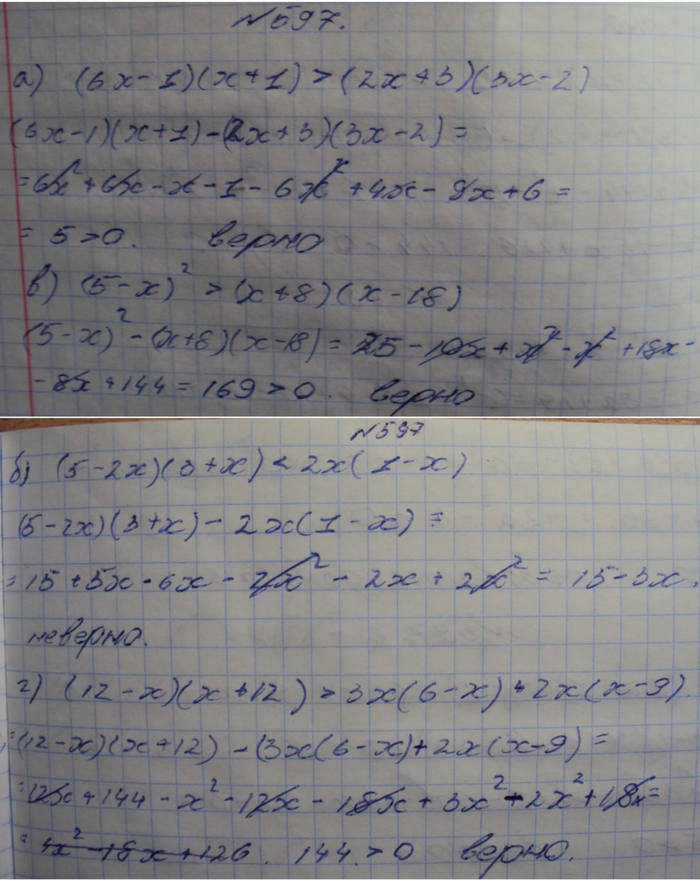 №597.
а) (6x-1)(x+1)>(2x+3)(3x-2)
(6x-1)(x+1)-(2x+3)(3x-2)=
=6x²+6x-x-1-6x²+4x-9x+6=
=5>0. верно
в) (5-x)²>(x+8)(x-18)
(5-x)²-(x+8)(x-18)=25-10x+x²-x²+18x-
-8x+144=169>0. верно
№597
б) (5-2x)(3+x)<2x(1-x)
(5-2x)(3+x)-2x(1-x)=
=15+5x-6x-2x²-2x+2x²=15-3x.
неверно.
г) (12-x)(x+12)>3x(6-x)+2x(x-9)
=(12-x)(x+12)-(3x(6-x)+2x(x-9)=
=12x+144-x²-12x-18x+3x²-2x²+18x=
=4x²-18x+126. 144>0 верно.